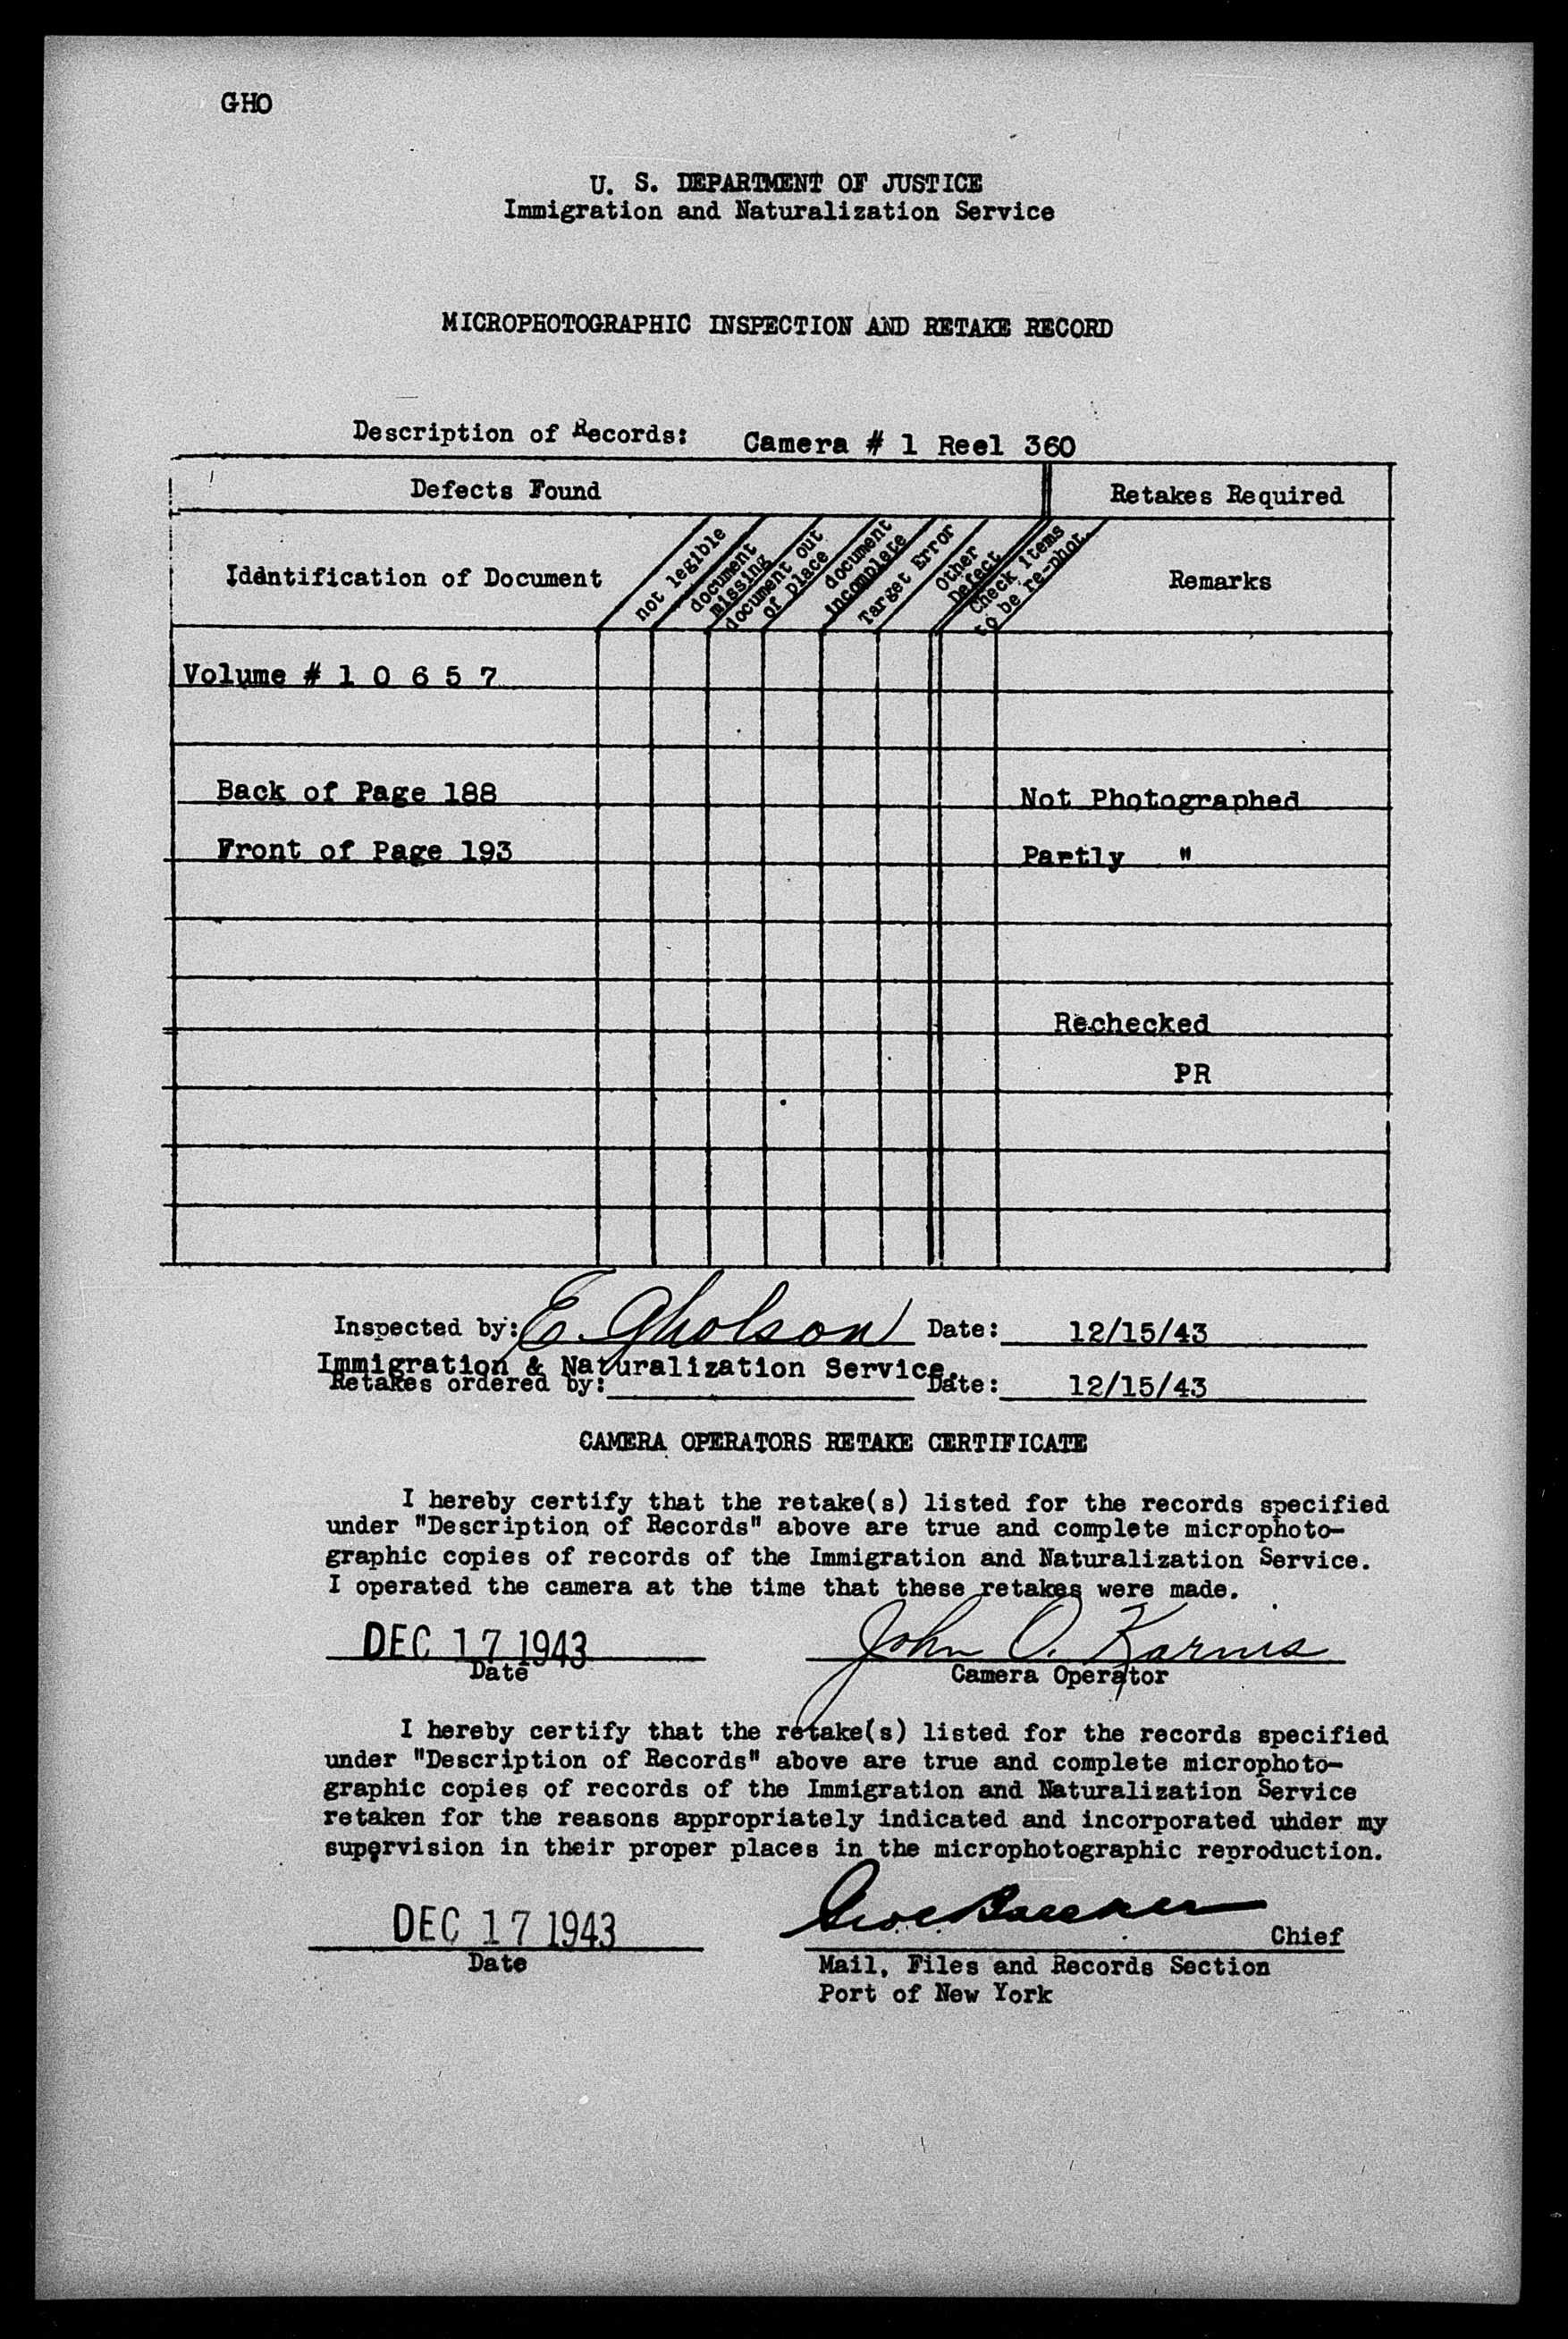 GHO
U. S. DEPARTMENT OF JUSTICE
Immigration and Naturalization Service
MICROPHOTOGRAPHIC INSPECTION AND RETAKE RECORD
Description of Records: Camera # 1 Reel 360
Defects Found Retakes Required
Identification of Document
not legible
document
missing
document out
of place
document
incomplete
Target Error
Other
Defect
Check items
to be re-phot.
Remarks
Volume # 1 0 6 5 7
Back of Page 188 Not Photographed
Front of Page 193 Partly "
Rechecked
PR
Inspected by: E. Gholson Date: 12/15/43
Immigration & Naturalization Service.
Retakes ordered by: Date: 12/15/43
CAMERA OPERATORS RETAKE CERTIFICATE
I hereby certify that the retake(s) listed for the records specified
under "Description of Records" above are true and complete microphoto-
graphic copies of records of the Immigration and Naturalization Service.
I operated the camera at the time that these retakes were made.
DEC 17 1943 John O. Karnis
Date Camera Operator
I hereby certify that the retake(s) listed for the records specified
under "Description of Records" above are true and complete microphoto-
graphic copies of records of the Immigration and Naturalization Service
retaken for the reasons appropriately indicated and incorporated uhder my
supervision in their proper places in the microphotographic reproduction.
DEC 17 1943 Chief
Date Mail, Files and Records Section
Port of New York